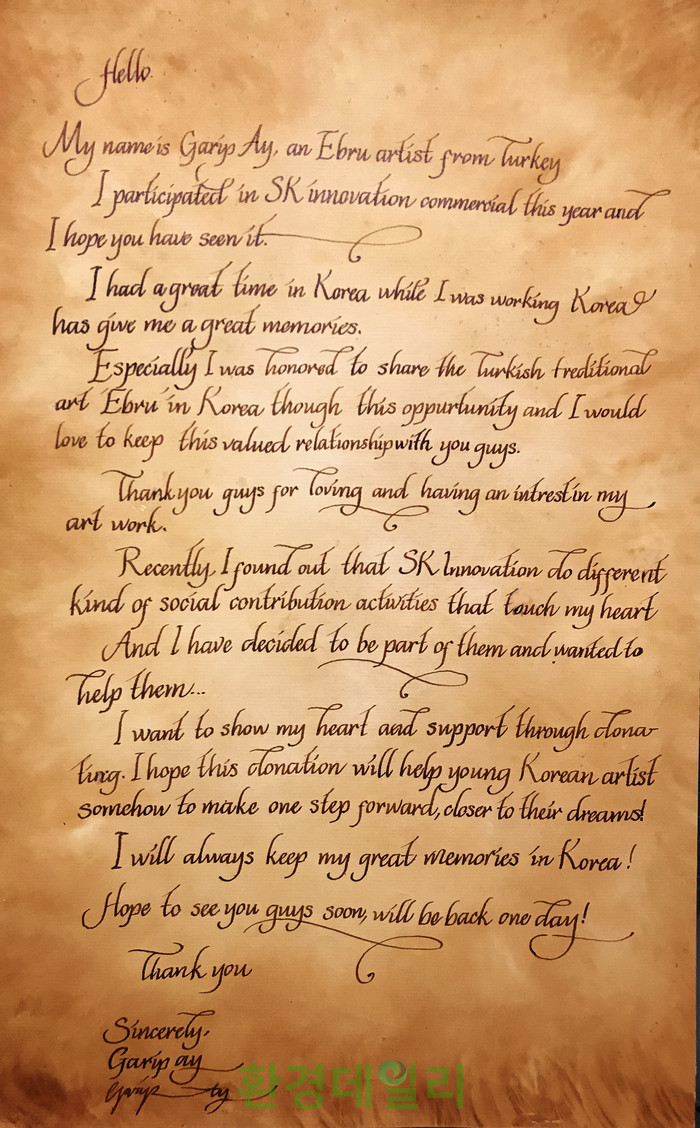 Hello.
My name is Garip Ay, an Ebru artist from Turkey
I participated in SK innovation commercial this year and
I hope you have seen it.
I had a great time in Korea while I was working Korea
has give me a great memories.
Especially I was honored to share the Turkish treditional
art "Ebru" in Korea though this oppurtunity and I would
love to keep this valued relationship with you guys.
Thank you guys for loving and having an intrest in my
art work.
Recently I found out that SK Innovation do different
kind of social contribution activities that touch my heart
And I have decided to be part of them and wanted to
help them...
I want to show my heart and support through dona-
ting. I hope this donation will help young Korean artist
somehow to make one step forward, closer to their dreams!
I will always keep my great memories in Korea!
Hope to see you guys soon, will be back one day!
Thank you
Sincerely,
Garip ay
환경데일리